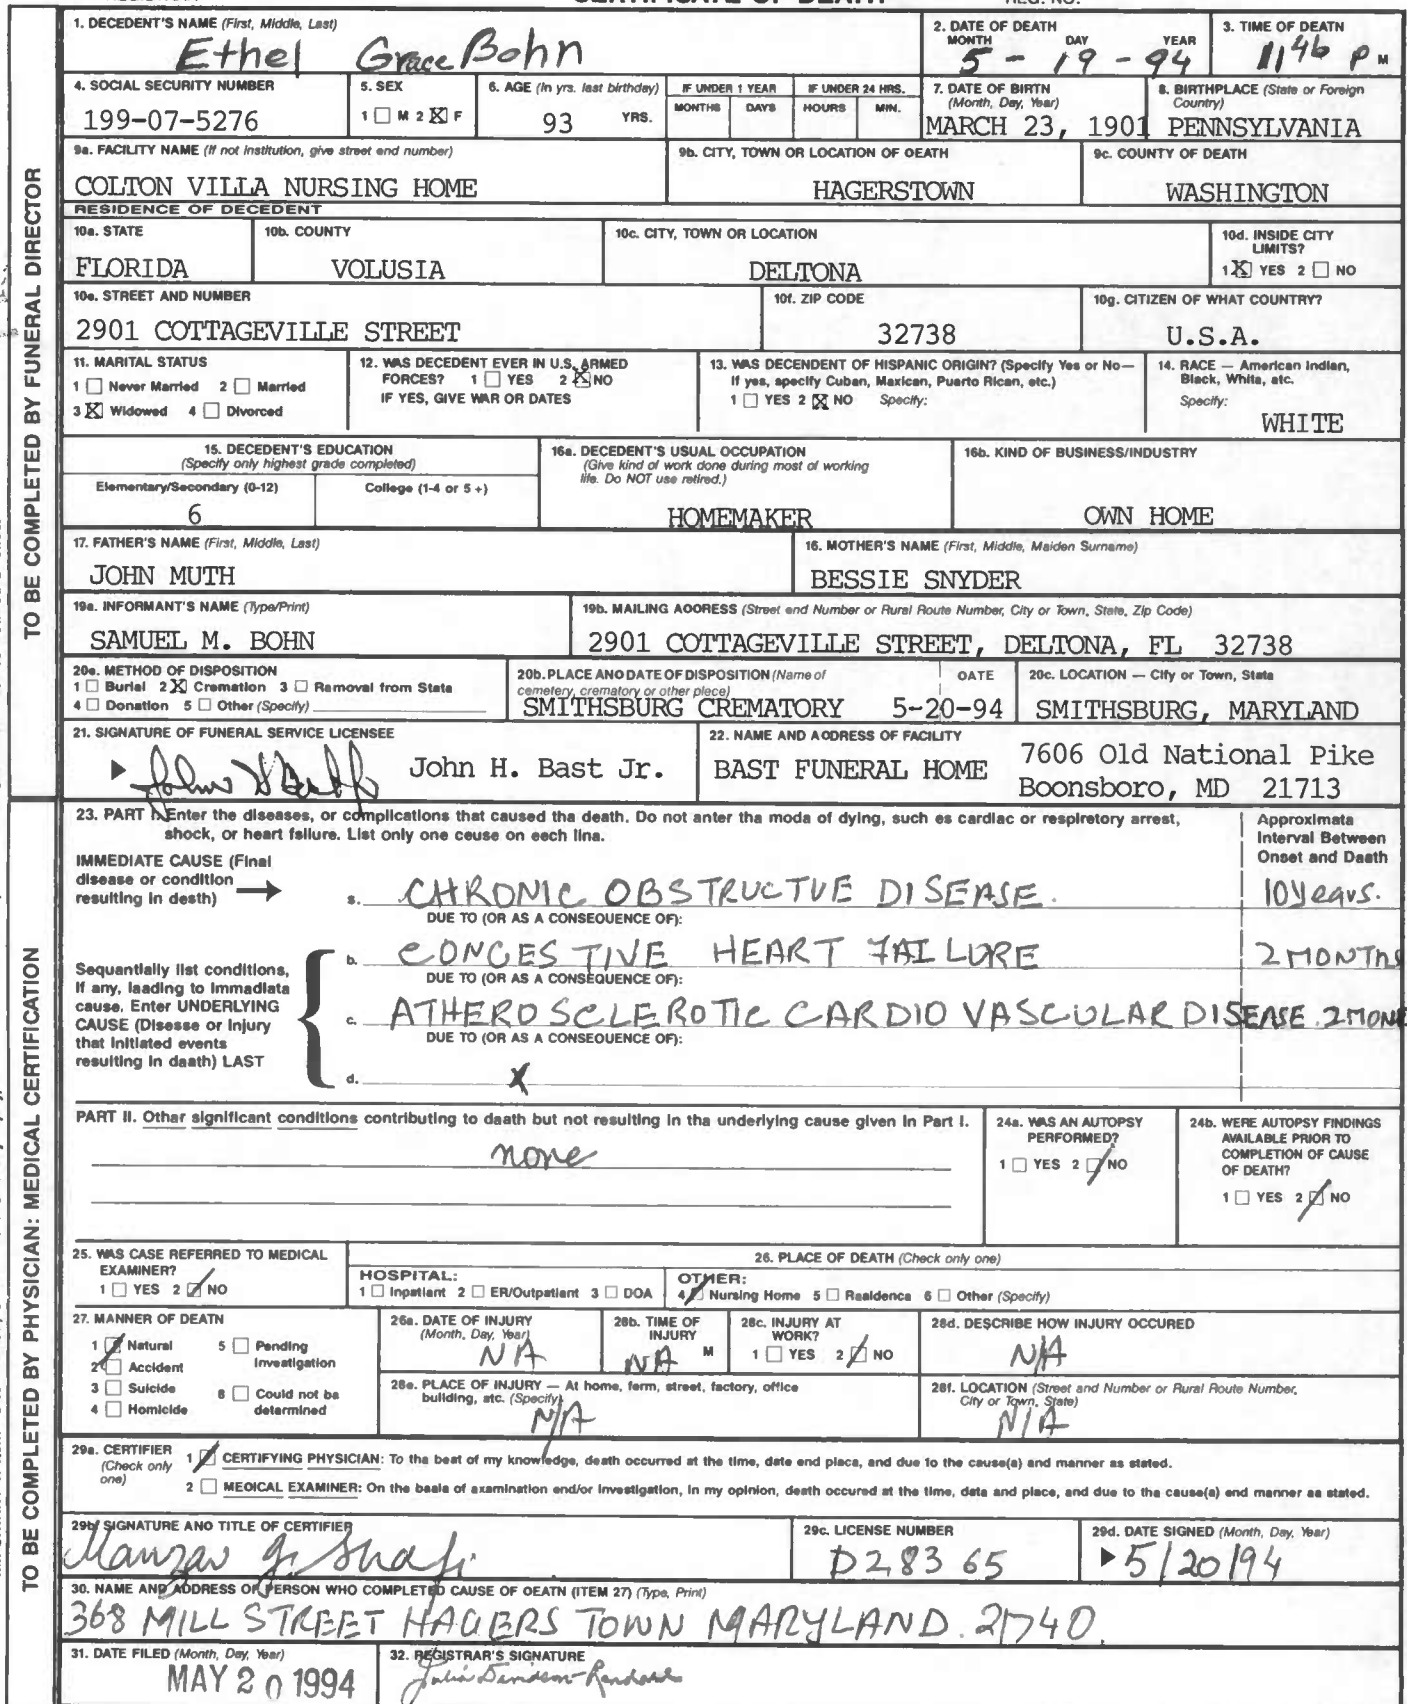 CERTIFICATE OF DEATH REG. NO.
TO BE COMPLETED BY FUNERAL DIRECTOR
1. DECEDENT'S NAME (First, Middle, Last)
Ethel Grace Bohn
2. DATE OF DEATH
MONTH DAY YEAR
5 - 19 - 94
3. TIME OF DEATH
1146 P M
4. SOCIAL SECURITY NUMBER
199-07-5276
5. SEX
1 ☐ M 2 ☒ F
6. AGE (In yrs. last birthday)
93 YRS.
IF UNDER 1 YEAR
MONTHS DAYS
IF UNDER 24 HRS.
HOURS MIN.
7. DATE OF BIRTH
(Month, Day, Year)
MARCH 23, 1901
8. BIRTHPLACE (State or Foreign
Country)
PENNSYLVANIA
9a. FACILITY NAME (If not institution, give street and number)
COLTON VILLA NURSING HOME
9b. CITY, TOWN OR LOCATION OF DEATH
HAGERSTOWN
9c. COUNTY OF DEATH
WASHINGTON
RESIDENCE OF DECEDENT
10a. STATE
FLORIDA
10b. COUNTY
VOLUSIA
10c. CITY, TOWN OR LOCATION
DELTONA
10d. INSIDE CITY
LIMITS?
1 ☒ YES 2 ☐ NO
10e. STREET AND NUMBER
2901 COTTAGEVILLE STREET
10f. ZIP CODE
32738
10g. CITIZEN OF WHAT COUNTRY?
U.S.A.
11. MARITAL STATUS
1 ☐ Never Married 2 ☐ Married
3 ☒ Widowed 4 ☐ Divorced
12. WAS DECEDENT EVER IN U.S. ARMED
FORCES? 1 ☐ YES 2 ☒ NO
IF YES, GIVE WAR OR DATES
13. WAS DECENDENT OF HISPANIC ORIGIN? (Specify Yes or No—
If yes, specify Cuban, Mexican, Puerto Rican, etc.)
1 ☐ YES 2 ☒ NO Specify:
14. RACE — American Indian,
Black, White, etc.
Specify:
WHITE
15. DECEDENT'S EDUCATION
(Specify only highest grade completed)
Elementary/Secondary (0-12) College (1-4 or 5 +)
6
16a. DECEDENT'S USUAL OCCUPATION
(Give kind of work done during most of working
life. Do NOT use retired.)
HOMEMAKER
16b. KIND OF BUSINESS/INDUSTRY
OWN HOME
17. FATHER'S NAME (First, Middle, Last)
JOHN MUTH
18. MOTHER'S NAME (First, Middle, Maiden Surname)
BESSIE SNYDER
19a. INFORMANT'S NAME (Type/Print)
SAMUEL M. BOHN
19b. MAILING ADDRESS (Street and Number or Rural Route Number, City or Town, State, Zip Code)
2901 COTTAGEVILLE STREET, DELTONA, FL 32738
20a. METHOD OF DISPOSITION
1 ☐ Burial 2 ☒ Cremation 3 ☐ Removal from State
4 ☐ Donation 5 ☐ Other (Specify)
20b. PLACE AND DATE OF DISPOSITION (Name of
cemetery, crematory or other place) DATE
SMITHSBURG CREMATORY 5-20-94
20c. LOCATION — City or Town, State
SMITHSBURG, MARYLAND
21. SIGNATURE OF FUNERAL SERVICE LICENSEE
John H. Bast Jr.
22. NAME AND ADDRESS OF FACILITY
BAST FUNERAL HOME 7606 Old National Pike
Boonsboro, MD 21713
TO BE COMPLETED BY PHYSICIAN: MEDICAL CERTIFICATION
23. PART I. Enter the diseases, or complications that caused the death. Do not enter the mode of dying, such as cardiac or respiratory arrest,
shock, or heart failure. List only one cause on each line.
Approximate
Interval Between
Onset and Death
IMMEDIATE CAUSE (Final
disease or condition
resulting in death)
a. CHRONIC OBSTRUCTVE DISEASE. 10 years.
DUE TO (OR AS A CONSEQUENCE OF):
b. CONGESTIVE HEART FAILURE 2 MONTHS
DUE TO (OR AS A CONSEQUENCE OF):
Sequentially list conditions,
if any, leading to immediate
cause. Enter UNDERLYING
CAUSE (Disease or injury
that initiated events
resulting in death) LAST
c. ATHEROSCLEROTIC CARDIO VASCULAR DISEASE. 2 MON
DUE TO (OR AS A CONSEQUENCE OF):
d. X
PART II. Other significant conditions contributing to death but not resulting in the underlying cause given in Part I.
none
24a. WAS AN AUTOPSY
PERFORMED?
1 ☐ YES 2 ☑ NO
24b. WERE AUTOPSY FINDINGS
AVAILABLE PRIOR TO
COMPLETION OF CAUSE
OF DEATH?
1 ☐ YES 2 ☑ NO
25. WAS CASE REFERRED TO MEDICAL
EXAMINER?
1 ☐ YES 2 ☑ NO
26. PLACE OF DEATH (Check only one)
HOSPITAL:
1 ☐ Inpatient 2 ☐ ER/Outpatient 3 ☐ DOA
OTHER:
4 ☑ Nursing Home 5 ☐ Residence 6 ☐ Other (Specify)
27. MANNER OF DEATH
1 ☑ Natural 5 ☐ Pending
2 ☐ Accident Investigation
3 ☐ Suicide 6 ☐ Could not be
4 ☐ Homicide determined
28a. DATE OF INJURY
(Month, Day, Year)
NA
28b. TIME OF
INJURY
NA M
28c. INJURY AT
WORK?
1 ☐ YES 2 ☑ NO
28d. DESCRIBE HOW INJURY OCCURED
N/A
28e. PLACE OF INJURY — At home, farm, street, factory, office
building, etc. (Specify)
N/A
28f. LOCATION (Street and Number or Rural Route Number,
City or Town, State)
N/A
29a. CERTIFIER
(Check only
one)
1 ☑ CERTIFYING PHYSICIAN: To the best of my knowledge, death occurred at the time, date and place, and due to the cause(s) and manner as stated.
2 ☐ MEDICAL EXAMINER: On the basis of examination and/or investigation, in my opinion, death occured at the time, date and place, and due to the cause(s) and manner as stated.
29b. SIGNATURE AND TITLE OF CERTIFIER
Manzar J. Shafi
29c. LICENSE NUMBER
D28365
29d. DATE SIGNED (Month, Day, Year)
5/20/94
30. NAME AND ADDRESS OF PERSON WHO COMPLETED CAUSE OF DEATH (ITEM 27) (Type, Print)
368 MILL STREET HAGERSTOWN MARYLAND. 21740.
31. DATE FILED (Month, Day, Year)
MAY 20 1994
32. REGISTRAR'S SIGNATURE
Julia Davidson-Randall